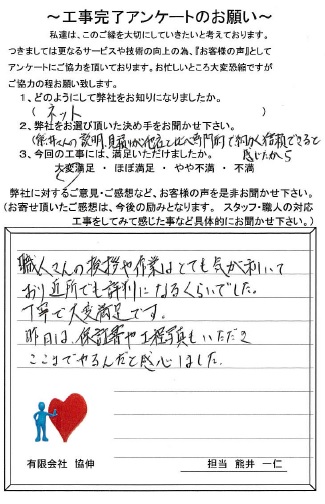 ～工事完了アンケートのお願い～
私達は、このご縁を大切にしていきたいと考えております。
つきましては更なるサービスや技術の向上の為、『お客様の声』として
アンケートにご協力を頂いております。お忙しいところ大変恐縮ですが
ご協力の程お願い致します。
1、どのようにして弊社をお知りになりましたか。
（ ネット ）
2、弊社をお選び頂いた決め手をお聞かせ下さい。
さんの説明、見積りが他社とくらべ専門的で細かく信頼できると
感じたから
3、今回の工事には、満足いただけましたか。
大変満足 ・ ほぼ満足 ・ やや不満 ・ 不満
弊社に対するご意見・ご感想など、お客様の声を是非お聞かせ下さい。
（お寄せ頂いたご感想は、今後の励みとなります。 スタッフ・職人の対応
工事をしてみて感じた事など具体的にお聞かせ下さい。）
職人さんの挨拶や作業はとても気が利いて
おり近所でも評判になるくらいでした。
丁寧で大変満足です。
昨日は、保証書や工程写真もいただき
ここまでやるんだと感心しました。
有限会社 協伸
担当 熊井 一仁